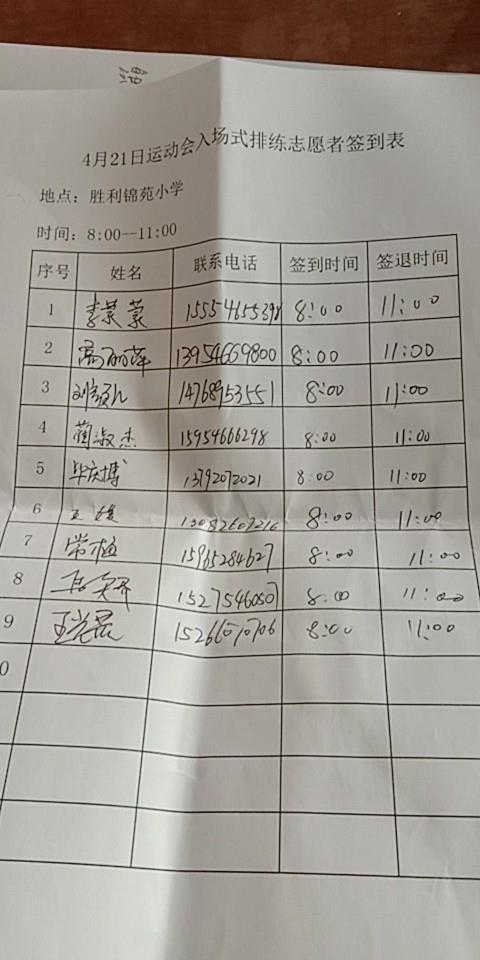 4月21日运动会入场式排练志愿者签到表
地点：胜利锦苑小学
时间：8:00--11:00
序号 姓名 联系电话 签到时间 签退时间
1 15554655398 8:00 11:00
2 高丽萍 13954669800 8:00 11:00
3 14768953551 8:00 11:00
4 蔺淑杰 15954666298 8:00 11:00
5 毕庆博 1392072021 8:00 11:00
6 8:00 11:00
7 常梅 15965284627 8:00 11:00
8 15275460507 8:00 11:00
9 8:00 11:00
0